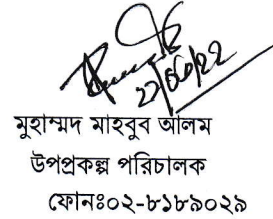 ২২/০৬/২২
মুহাম্মদ মাহবুব আলম
উপপ্রকল্প পরিচালক
ফোনঃ০২-৮১৮৯০২৯